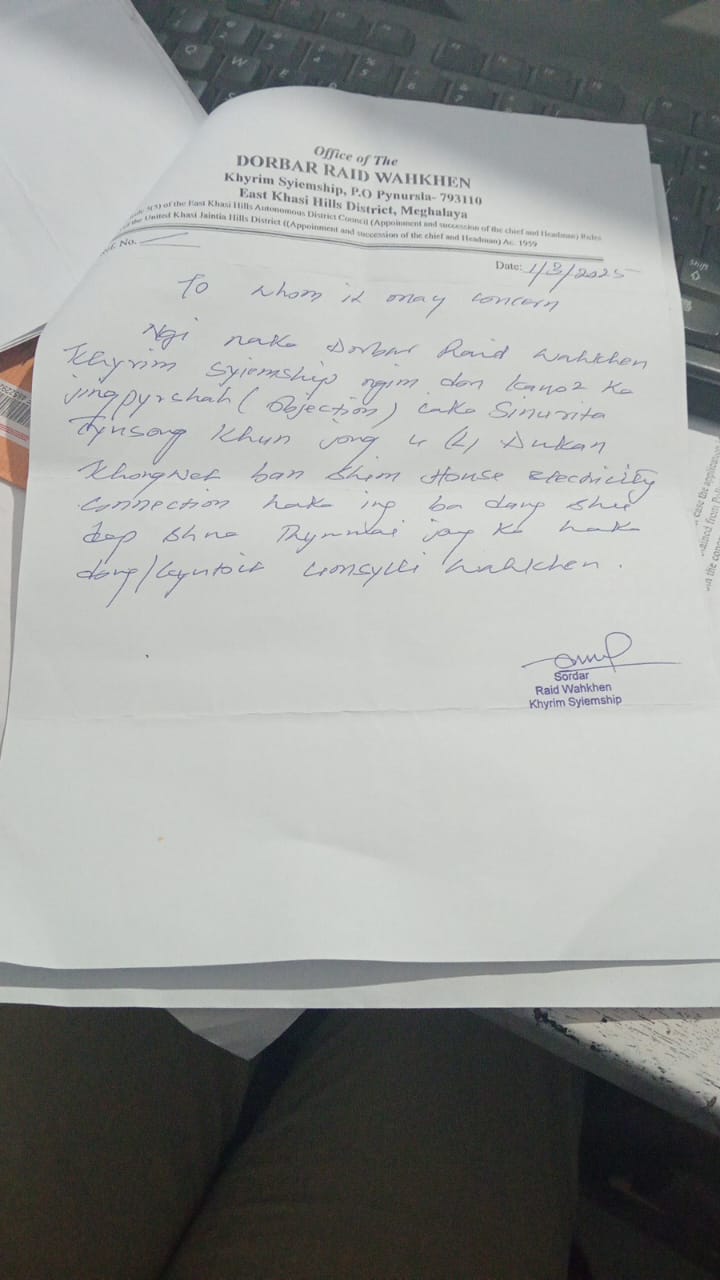 Office of The
DORBAR RAID WAHKHEN
Khyrim Syiemship, P.O Pynursla- 793110
East Khasi Hills District, Meghalaya
3(5) of the East Khasi Hills Autonomous District Council (Appoinment and succession of the chief and Headman) Rules
the United Khasi Jaintia Hills District ((Appoinment and succession of the chief and Headman) Ac. 1959
No.
Date: 1/8/2025
To whom it may concern
Ngi naka Dorbar Raid Wahkhen
Khyrim Syiemship ngim don kano2 ka
jingpyrshah (objection) ïaka Sinurita
Tynsong Khun jong u (L) Dukan
Khongwet ban shim House Electricity
Connection haka ing ba dang shu
dep shna Thymmai jong ka haka
dong/
Wahkhen.
Sordar
Raid Wahkhen
Khyrim Syiemship